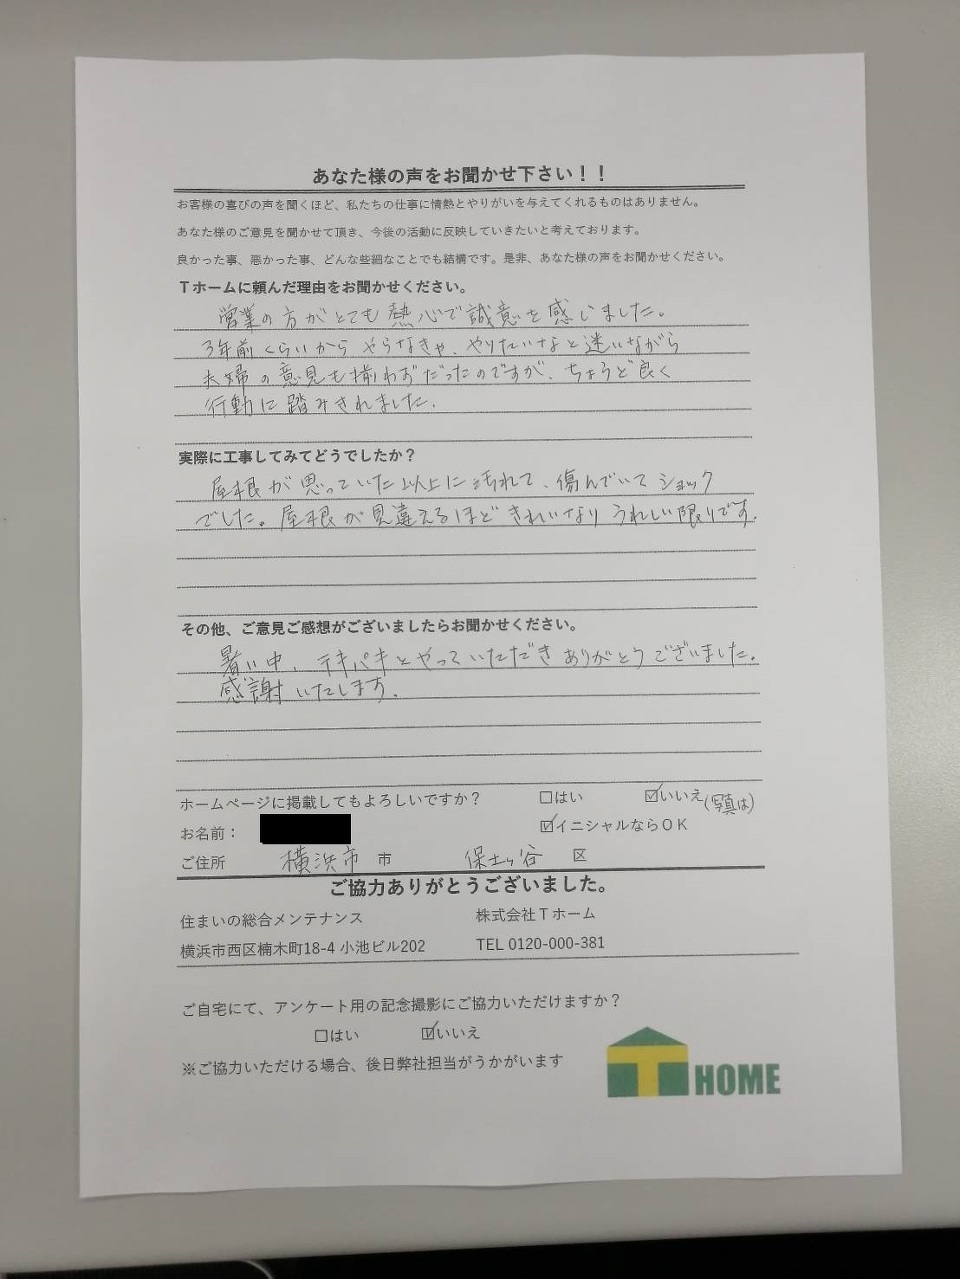 あなた様の声をお聞かせ下さい！！
お客様の喜びの声を聞くほど、私たちの仕事に情熱とやりがいを与えてくれるものはありません。
あなた様のご意見を聞かせて頂き、今後の活動に反映していきたいと考えております。
良かった事、悪かった事、どんな些細なことでも結構です。是非、あなた様の声をお聞かせください。
Ｔホームに頼んだ理由をお聞かせください。
営業の方がとても熱心で誠意を感じました。
3年前くらいから やらなきゃ、やりたいなと迷いながら
夫婦の意見も揃わずだったのですが、ちょうど良く
行動に踏みきれました。
実際に工事してみてどうでしたか？
屋根が思っていた以上に汚れて、傷んでいてショック
でした。屋根が見違えるほどきれいなり うれしい限りです。
その他、ご意見ご感想がございましたらお聞かせください。
暑い中、テキパキとやっていただきありがとうございました。
感謝いたします。
ホームページに掲載してもよろしいですか？ □はい ☑いいえ(写真は)
お名前： ☑イニシャルならＯＫ
ご住所 横浜市 市 保土ヶ谷 区
ご協力ありがとうございました。
住まいの総合メンテナンス 株式会社Ｔホーム
横浜市西区楠木町18-4 小池ビル202 TEL 0120-000-381
ご自宅にて、アンケート用の記念撮影にご協力いただけますか？
□はい ☑いいえ
※ご協力いただける場合、後日弊社担当がうかがいます
T HOME